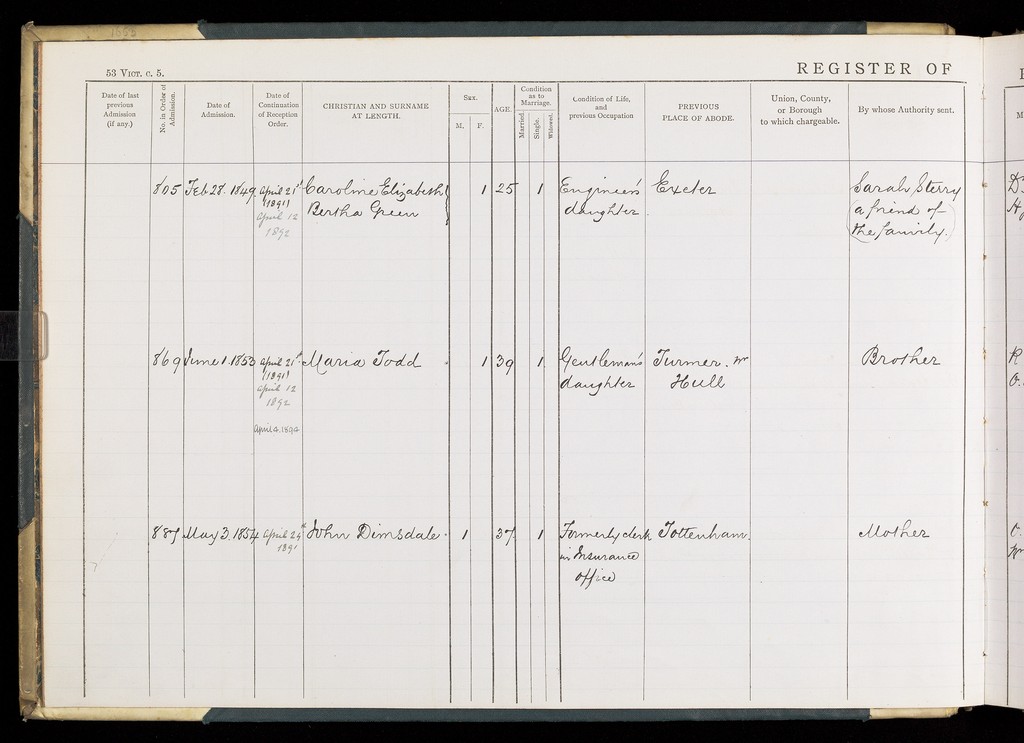 53 Vict. c. 5.
REGISTER OF
Date of last previous Admission (if any.)
No. in Order of Admission.
Date of Admission.
Date of Continuation of Reception Order.
CHRISTIAN AND SURNAME AT LENGTH.
Sex.
M. F.
AGE.
Condition as to Marriage.
Married. Single. Widowed.
Condition of Life, and previous Occupation
PREVIOUS PLACE OF ABODE.
Union, County, or Borough to which chargeable.
By whose Authority sent.
805 Feb 28. 1849 April 21st Caroline Elizabeth 1 25 1 Engineer's Exeter Sarah Sterry
(1891) Bertha Green daughter (a friend of
April 12 the family.)
1892
869 June 1. 1853 April 21st Maria Todd 1 39 1 Gentleman's Turmer. nr Brother
(1891) daughter Hull
April 12
1892
April 4. 1894
887 May 3. 1854 April 29th John Dimsdale 1 37 1 Formerly clerk Tottenham. Mother
1891 in Insurance
office